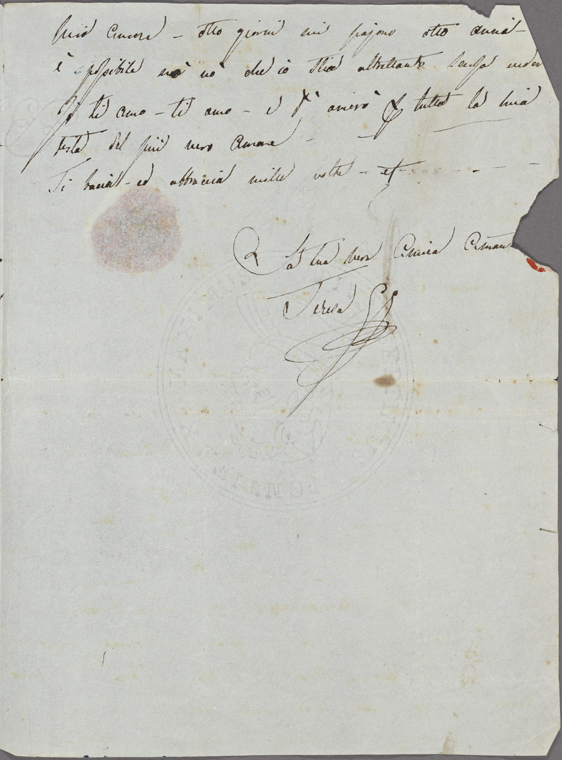 mio amore - otto giorni mi pajono otto anni -
è possibile no nò che io stia altrettanto senza veder
ti amo - ti amo - e t'amerò tutta la mia
vita del più vero amore -
Ti bacia - ed abbraccia mille volte - et
La tua vera Amica
Teresa